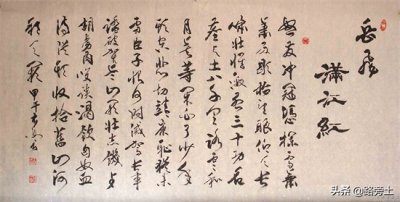 岳飞
满江红
怒发冲冠憑栏處潇
萧雨歇抬望眼仰天长
啸壮怀激烈三十功名
尘与土八千里路云和
月莫等闲白了少年
头空悲切靖康耻犹未
雪臣子恨何时灭驾长车
踏破贺兰山缺壮志饥餐
胡虏肉笑谈渴饮匈奴血
待从头收拾旧山河
朝天阙 甲午
头条 @路旁土